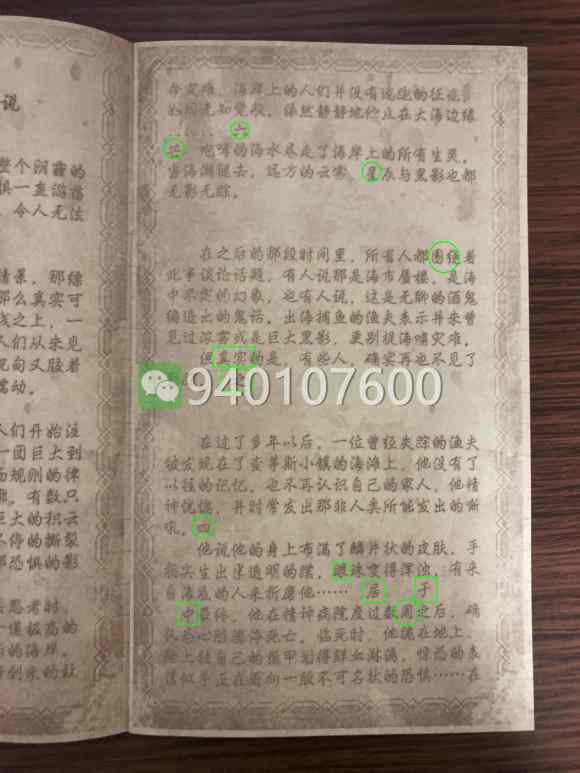 说
整个阴霾的
惧一鱼游
令人无法
情景,那缘
那么真实可
线之上,一
人们从未见
人们开始注
一团巨大到
规则的律
有数只
巨大的积云
不停的撕裂
恐惧的影
思考时,
的海岸。
海岸上的人们并没有逃跑的征兆
依然静静地伫立在大海边缘
…… 六
芒 咆哮的海水尽走了海岸上的所有生灵。
当海潮褪去,远方的云雾、星辰与黑影也都
无影无踪。
在之后的那段时间里,所有人都围绕着
此事谈论话题,有人说那是海市蜃楼,是海
中不定的幻象,也有人说,这是无聊的酒鬼
编造出的鬼话。出海捕鱼的渔夫表示并未曾
见过浓雾或是巨大黑影,更别提海啸灾难。
但真实的是,有些人,确实再也不见了
之
940107600
在过了多年以后,一位曾经失踪的渔夫
被发现在了查蒂斯小镇的海滩上,他没有了
以往的记忆,也不再认识自己的家人,他精
神恍惚,并时常发出那非人类所能发出的嘶
吼。四
他说他的身上布满了鳞片状的皮肤,手
指尖生出半透明的蹼,眼珠变得浑浊,有来
自海底的人来折磨他…… 居 于
中 他在精神病院度过数周之后,确
认为心脏骤停死亡。临死时,他跪在地上,
脸上被自己的指甲划得鲜血淋漓,惊恐的表
情似乎正在看向一股不可名状的恐惧……在